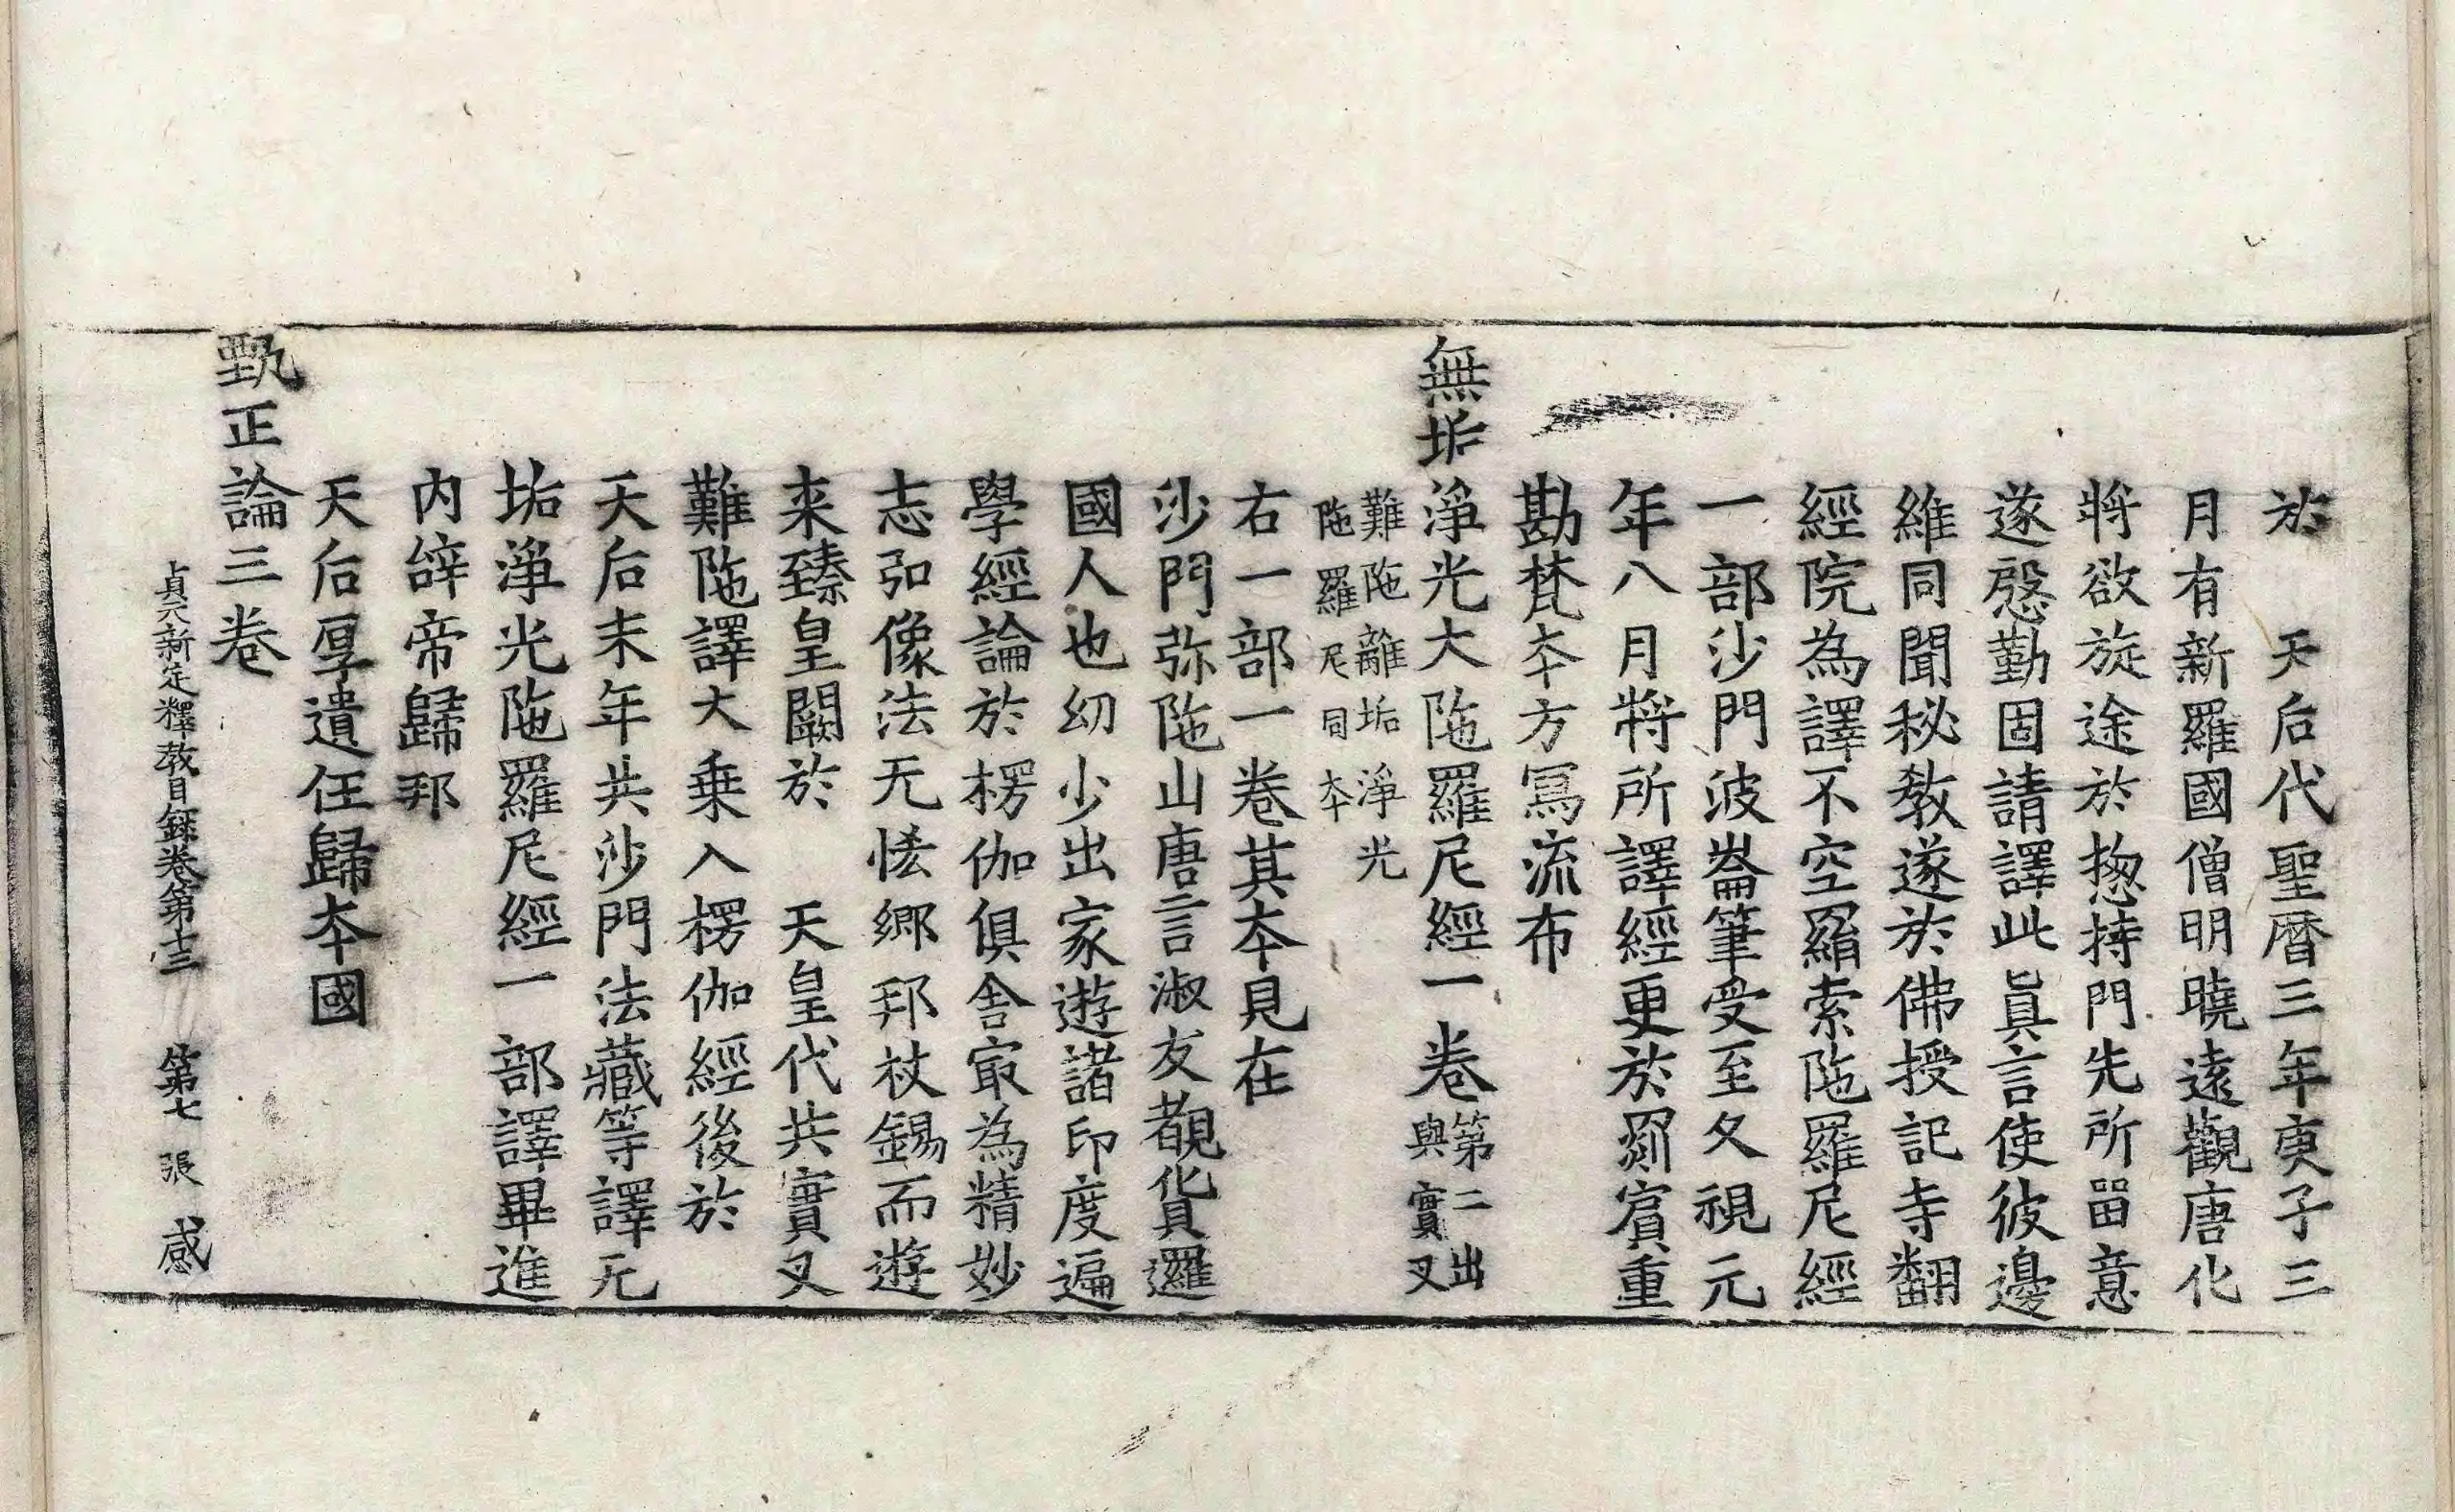 於　天后代聖曆三年庚子三
月有新羅國僧明曉遠觀唐化
將欲旋途於惣持門先所留意
遂慇勤固請譯此眞言使彼邊
維同聞秘教遂於佛授記寺翻
經院為譯不空羂索陁羅尼經
一部沙門波崙筆受至久視元
年八月將所譯經更於罽賓重
勘梵夲方寫流布
無垢淨光大陁羅尼經一卷第二出與實叉
難陁離垢淨光陁羅尼同夲
右一部一卷其夲見在
沙門弥陁山唐言淑友覩貨邏
國人也幼少出家遊諸印度遍
學經論於楞伽俱舍㝡為精妙
志弘像法无恡鄉邦杖錫而遊
来臻皇闕於　天皇代共實叉
難陁譯大乗入楞伽經後於
天后末年共沙門法藏等譯无
垢淨光陁羅尼經一部譯畢進
內辝帝歸邦
天后厚遺任歸夲國
甄正論三卷
貞元新定釋教目錄卷第十三　第七張　感